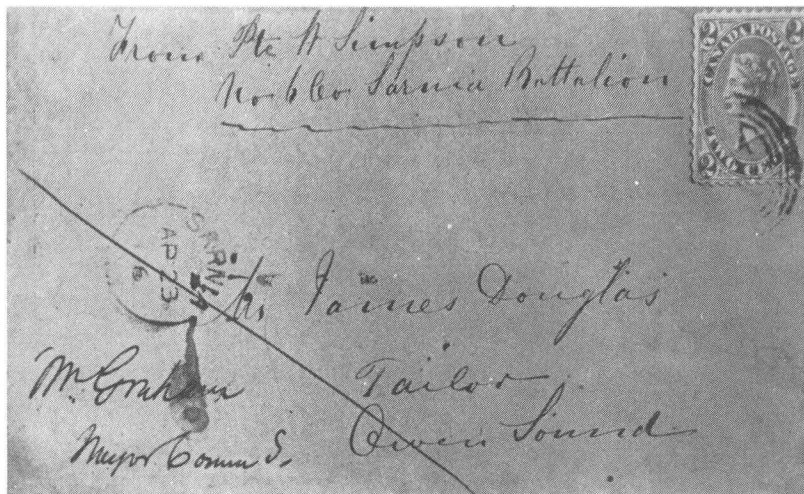 From Pte W Simpson
No 6 Co. Sarnia Battalion
2 CANADA POSTAGE 2
2 TWO CENTS 2
SARNIA
AP 23
6
Mr James Douglas
Tailor
Owen Sound
Wm. Graham
Mayor Comm S.